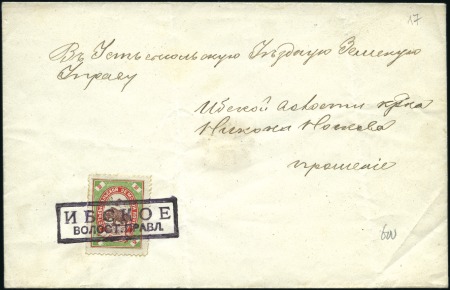 17
Въ Устьсысольскую Уѣздную Земскую
Управу
Ибской волости кр-на
Никона
прошеніе
ИБСКОЕ
ВОЛОСТ. ПРАВЛ.